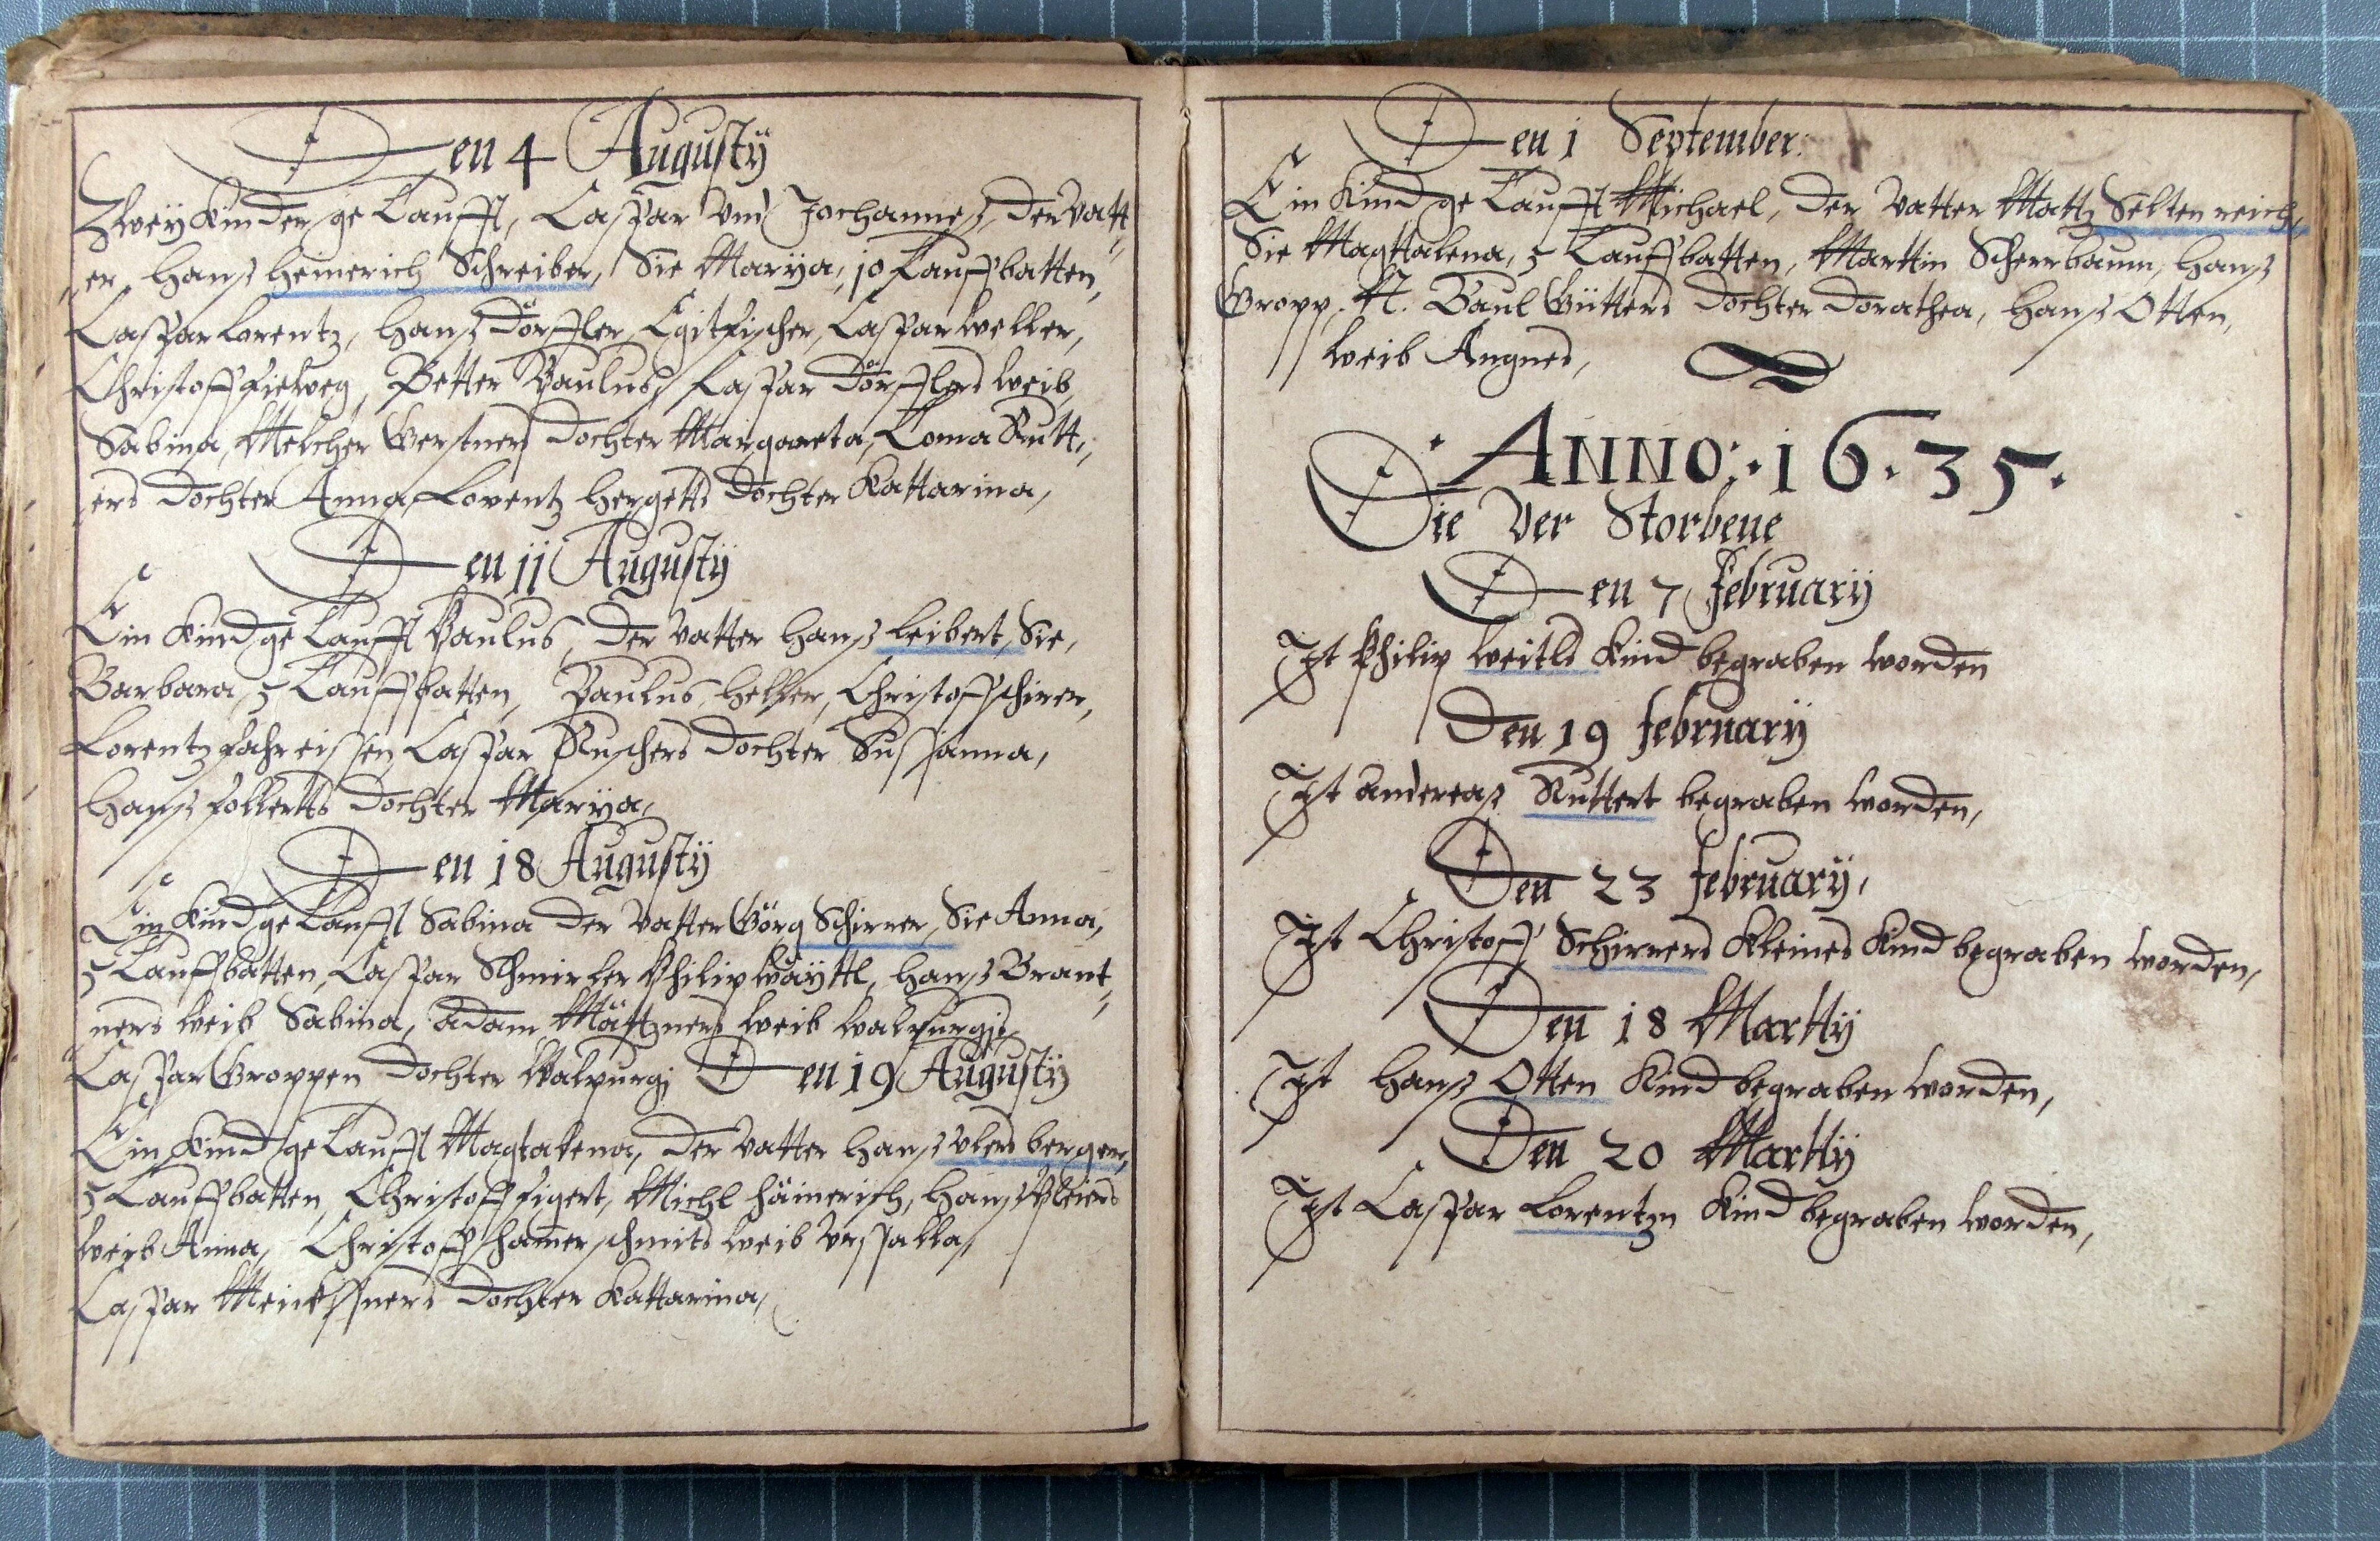 Den 4 Augustÿ
Zweÿ Kinder ge Taufft, Caspar Vnd Johannes, der Vatt„
„er Hans Heinerich Schreiber, Sie Marÿa, 10 Tauffbatten,
Caspar Lorentz, Hans Dörffler, Egit Fischer, Caspar Weller,
Christoff Fieweg, Petter Paulus, Caspar Dörfflers Weib,
Sabina, Melcher Gerstners Dochter Margareta, Toma Rutt„
„ers Dochter Anna, Lorentz Hergetts Dochter Kattarina,
Den 11 Augustÿ
Ein Kind ge Taufft Paulus, der Vatter Hans Leibert, Sie,
Barbara, 5 Tauffbatten, Paulus Heller, Christoff schirer,
Lorentz Caspar Ruschers Dochter Sussanna,
Hans Follertts Dochter Marÿa,
Den 18 Augustÿ
Ein Kind ge Taufft Sabina der Vatter Görg Schirrer, Sie Anna,
5 Tauffbatten, Caspar Schmirler Philip Waÿttl, Hans Brant„
ners Weib Sabina, Adam Mättzners Weib Walpurgi,
Caspar Groppen Dochter Walpurgi Den 19 Augustÿ
Ein Kind ge Taufft Magtalena, der Vatter Hans Vlers berger,
5 Tauffbatten, Christoff Figert, Michl Häinerich, Hans Pleiers
Weib Anna, Christoff Hamerschmits Weib Vrssalla,
Caspar Dochter Kattarina,
Den 1 September.
Ein Kind ge Taufft Michael, der Vatter Mattz Selten reich,
Sie Magttalena, 5 Tauffbatten, Marttin Scherrbaum, Hans
Gropp, N. Baul Gütters Dochter Dorathea, Hans Otten,
Weib Angnes,
ANNO: 16.35.
Die Ver Storbene
Den 7 Februarÿ
Ist Philip Weitls Kind begraben worden
Den 19 Februarÿ
Ist Andereas Ruttert begraben worden,
Den 23 Februarÿ,
Ist Christoff Schirrers Kleines Kind begraben worden,
Den 18 Marttÿ
Ist Hans Otten Kind begraben worden,
Den 20 Marttÿ
Ist Caspar Lorentzn Kind begraben worden,